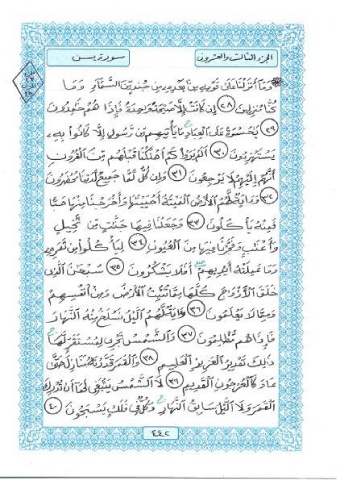 الجزء الثالث والعشرون
سورة يس
وَمَا أَنزَلْنَا عَلَىٰ قَوْمِهِ مِن بَعْدِهِ مِن جُندٍ مِّنَ السَّمَاءِ وَمَا
كُنَّا مُنزِلِينَ ٢٨ إِن كَانَتْ إِلَّا صَيْحَةً وَاحِدَةً فَإِذَا هُمْ خَامِدُونَ
٢٩ يَا حَسْرَةً عَلَى الْعِبَادِ مَا يَأْتِيهِم مِّن رَّسُولٍ إِلَّا كَانُوا بِهِ
يَسْتَهْزِئُونَ ٣٠ أَلَمْ يَرَوْا كَمْ أَهْلَكْنَا قَبْلَهُم مِّنَ الْقُرُونِ
أَنَّهُمْ إِلَيْهِمْ لَا يَرْجِعُونَ ٣١ وَإِن كُلٌّ لَّمَّا جَمِيعٌ لَّدَيْنَا مُحْضَرُونَ
٣٢ وَآيَةٌ لَّهُمُ الْأَرْضُ الْمَيْتَةُ أَحْيَيْنَاهَا وَأَخْرَجْنَا مِنْهَا حَبًّا
فَمِنْهُ يَأْكُلُونَ ٣٣ وَجَعَلْنَا فِيهَا جَنَّاتٍ مِّن نَّخِيلٍ
وَأَعْنَابٍ وَفَجَّرْنَا فِيهَا مِنَ الْعُيُونِ ٣٤ لِيَأْكُلُوا مِن ثَمَرِهِ
وَمَا عَمِلَتْهُ أَيْدِيهِمْ أَفَلَا يَشْكُرُونَ ٣٥ سُبْحَانَ الَّذِي
خَلَقَ الْأَزْوَاجَ كُلَّهَا مِمَّا تُنبِتُ الْأَرْضُ وَمِنْ أَنفُسِهِمْ
وَمِمَّا لَا يَعْلَمُونَ ٣٦ وَآيَةٌ لَّهُمُ اللَّيْلُ نَسْلَخُ مِنْهُ النَّهَارَ
فَإِذَا هُم مُّظْلِمُونَ ٣٧ وَالشَّمْسُ تَجْرِي لِمُسْتَقَرٍّ لَّهَا
ذَٰلِكَ تَقْدِيرُ الْعَزِيزِ الْعَلِيمِ ٣٨ وَالْقَمَرَ قَدَّرْنَاهُ مَنَازِلَ حَتَّىٰ
عَادَ كَالْعُرْجُونِ الْقَدِيمِ ٣٩ لَا الشَّمْسُ يَنبَغِي لَهَا أَن تُدْرِكَ
الْقَمَرَ وَلَا اللَّيْلُ سَابِقُ النَّهَارِ وَكُلٌّ فِي فَلَكٍ يَسْبَحُونَ ٤٠
٤٤٢